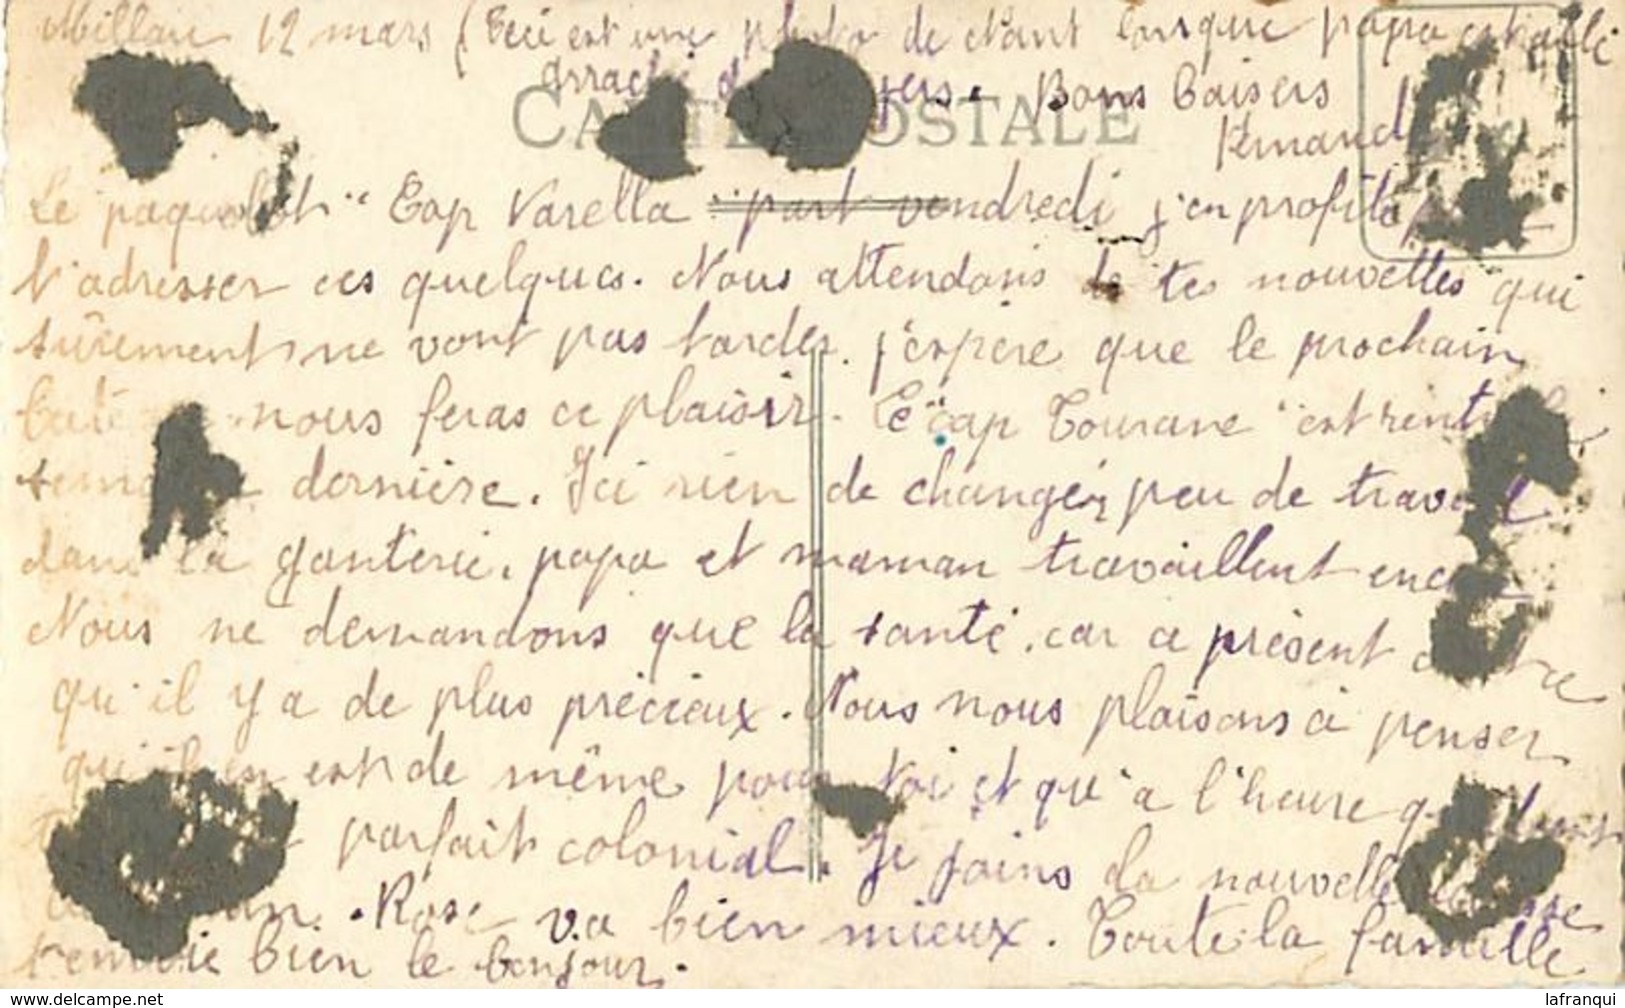 Millau 12 mars (Ceci est une photo de Nant lorsque papa est allé
arracher d pers. Bons baisers
CARTE POSTALE
Fernand
Le paquebot "Cap Varella" part vendredi j'en profite
t'adresser ces quelques. Nous attendons de tes nouvelles qui
sûrement ne vont pas tarder. j'espère que le prochain
nous feras ce plaisir. Le "cap Tourane" est rentré
semaine dernière. Ici rien de changé, peu de travail
dans la ganterie, papa et maman travaillent encore
Nous ne demandons que la santé, car à présent
qu'il y a de plus précieux. Nous nous plaisons à penser
qu'il en est de même pour toi et qu'à l'heure
parfait colonial. Je joins la nouvelle adresse
Rose va bien mieux. Toute la famille
t'envoie bien le bonjour.
lafranqui
www.delcampe.net